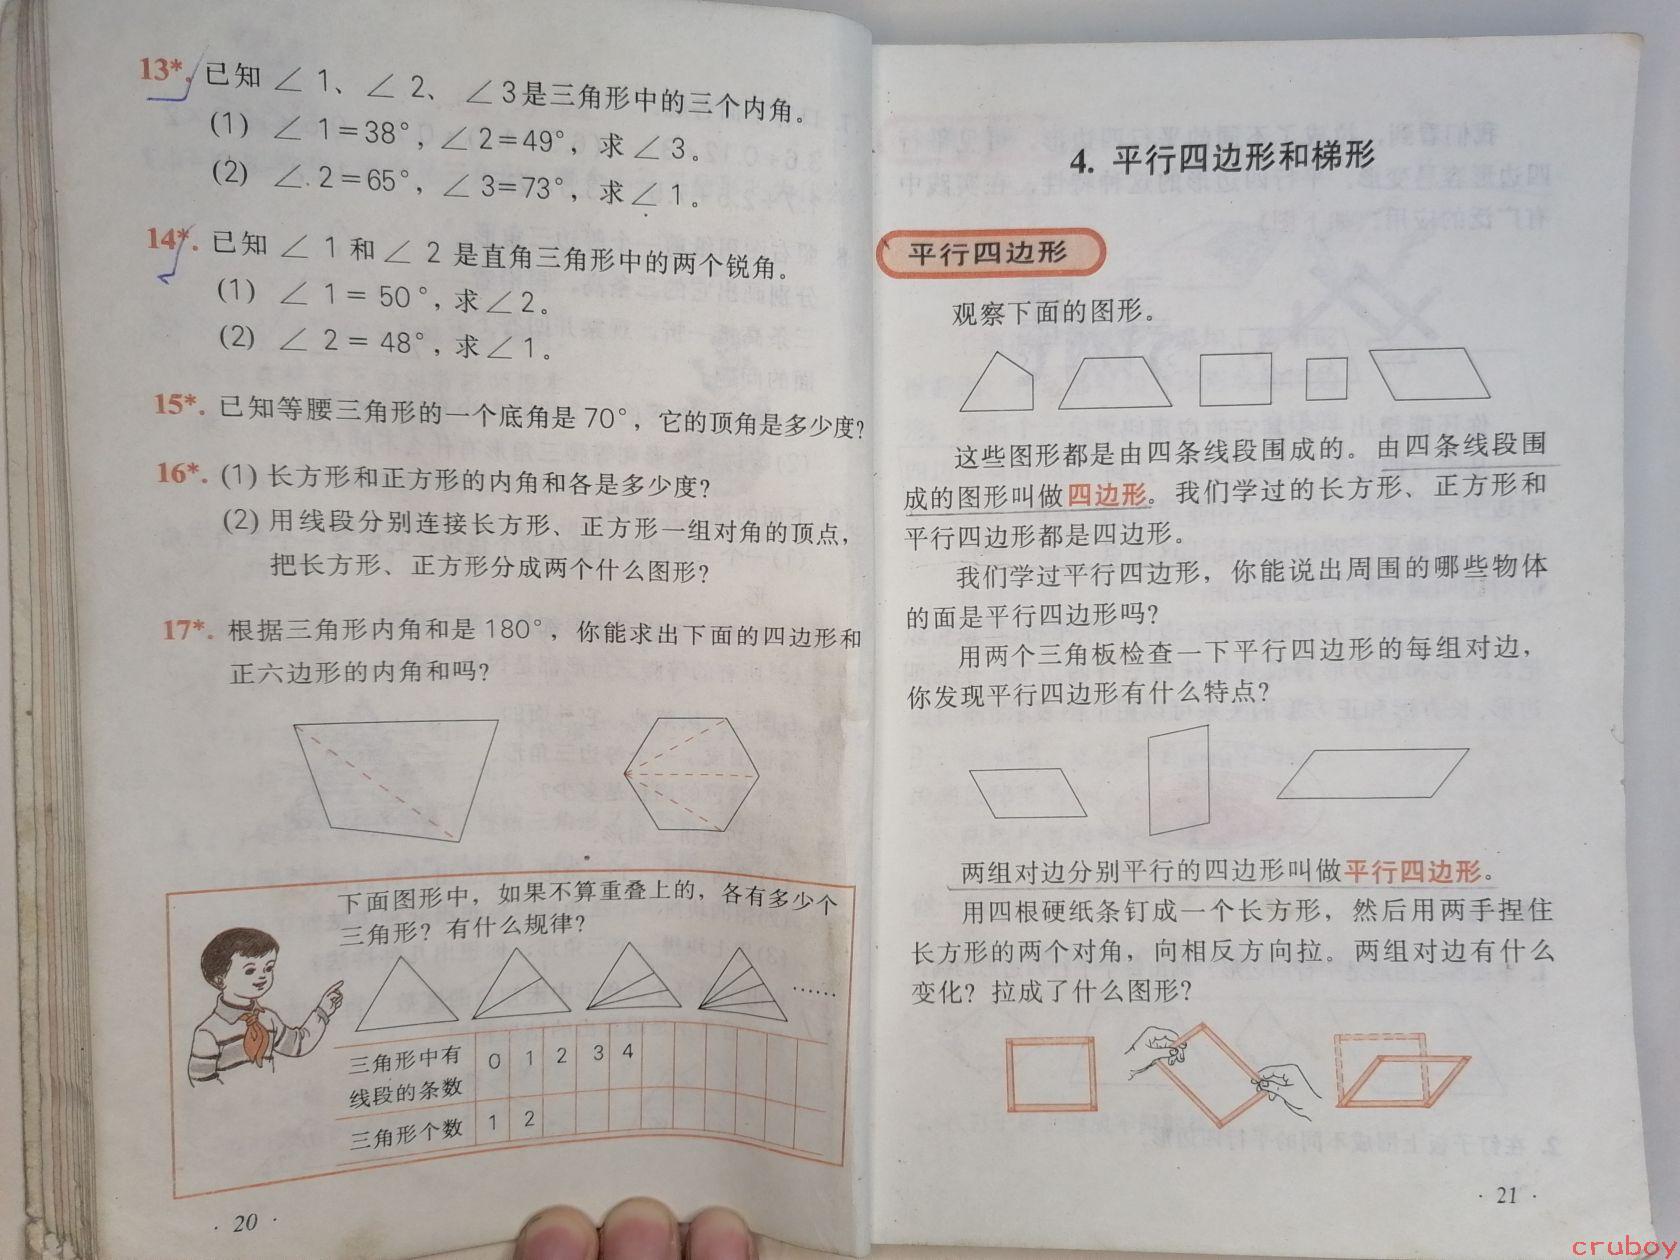 13*. 已知 ∠ 1、 ∠ 2、 ∠3是三角形中的三个内角。
(1) ∠ 1=38°, ∠2=49°, 求∠3。
(2) ∠ 2=65°, ∠3=73°, 求∠1。
14*. 已知 ∠ 1 和∠ 2 是直角三角形中的两个锐角。
(1) ∠ 1= 50°, 求∠2。
(2) ∠ 2= 48°, 求∠1。
15*. 已知等腰三角形的一个底角是70°, 它的顶角是多少度?
16*. (1) 长方形和正方形的内角和各是多少度?
(2) 用线段分别连接长方形、正方形一组对角的顶点,
把长方形、正方形分成两个什么图形?
17*. 根据三角形内角和是180°, 你能求出下面的四边形和
正六边形的内角和吗?
下面图形中, 如果不算重叠上的, 各有多少个
三角形? 有什么规律?
……
三角形中有
线段的条数 0 1 2 3 4
三角形个数 1 2
· 20 ·
4. 平行四边形和梯形
平行四边形
观察下面的图形。
这些图形都是由四条线段围成的。由四条线段围
成的图形叫做四边形。我们学过的长方形、正方形和
平行四边形都是四边形。
我们学过平行四边形, 你能说出周围的哪些物体
的面是平行四边形吗?
用两个三角板检查一下平行四边形的每组对边,
你发现平行四边形有什么特点?
两组对边分别平行的四边形叫做平行四边形。
用四根硬纸条钉成一个长方形, 然后用两手捏住
长方形的两个对角, 向相反方向拉。两组对边有什么
变化? 拉成了什么图形?
· 21 ·
cruboy